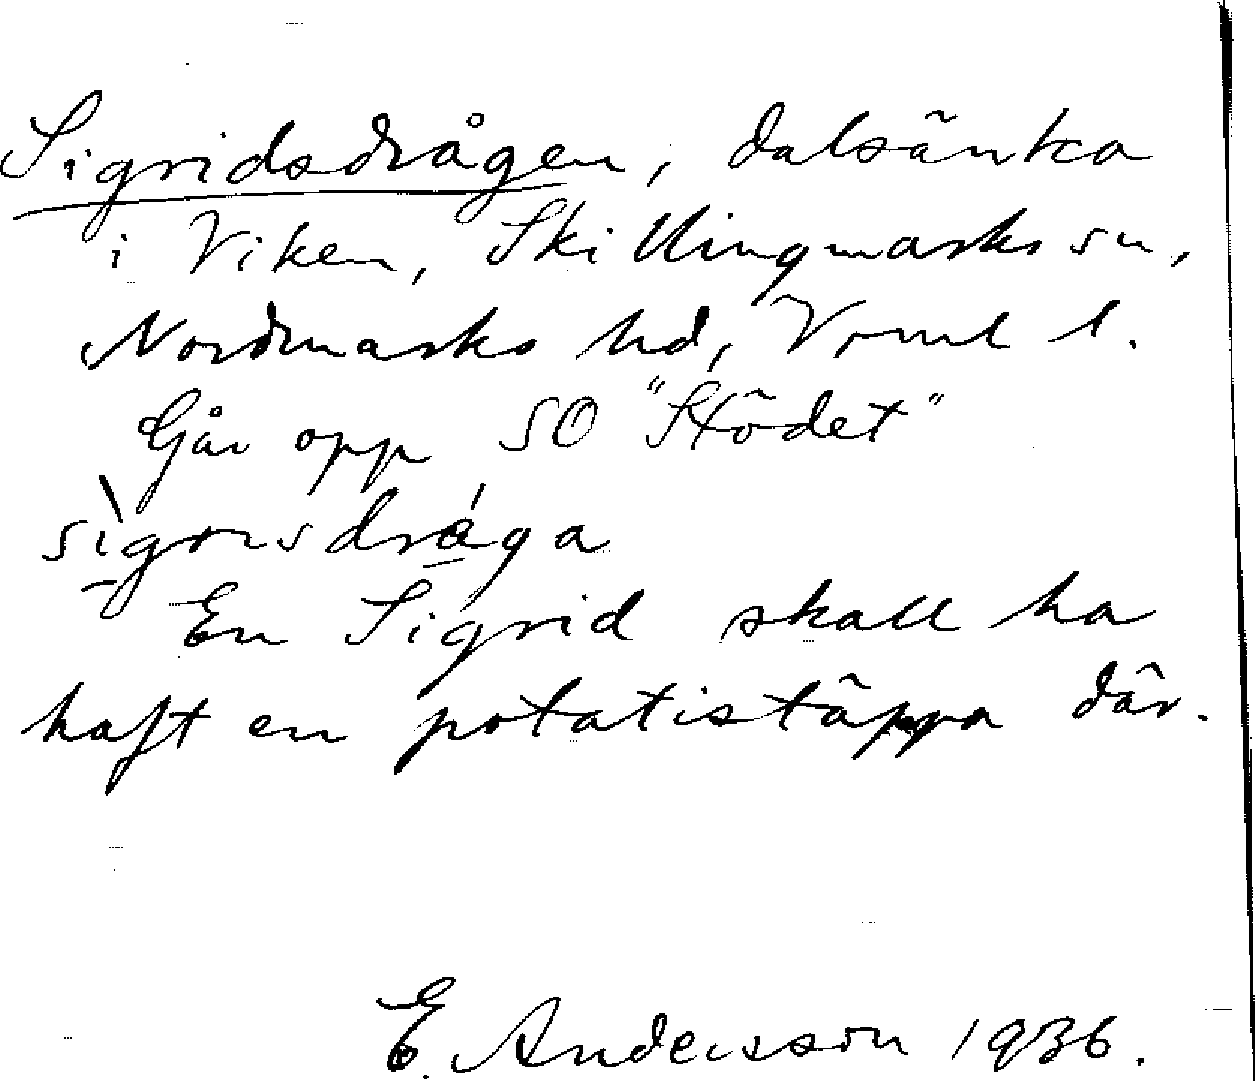 Sigridsdrågen, dalsänka
i Viken, Skillingmarks sn,
Nordmarks hd, Vrml l.
Går opp SO "Stödet"
En Sigrid skall ha
haft en potatistäppa där.
E. Andersson 1936.